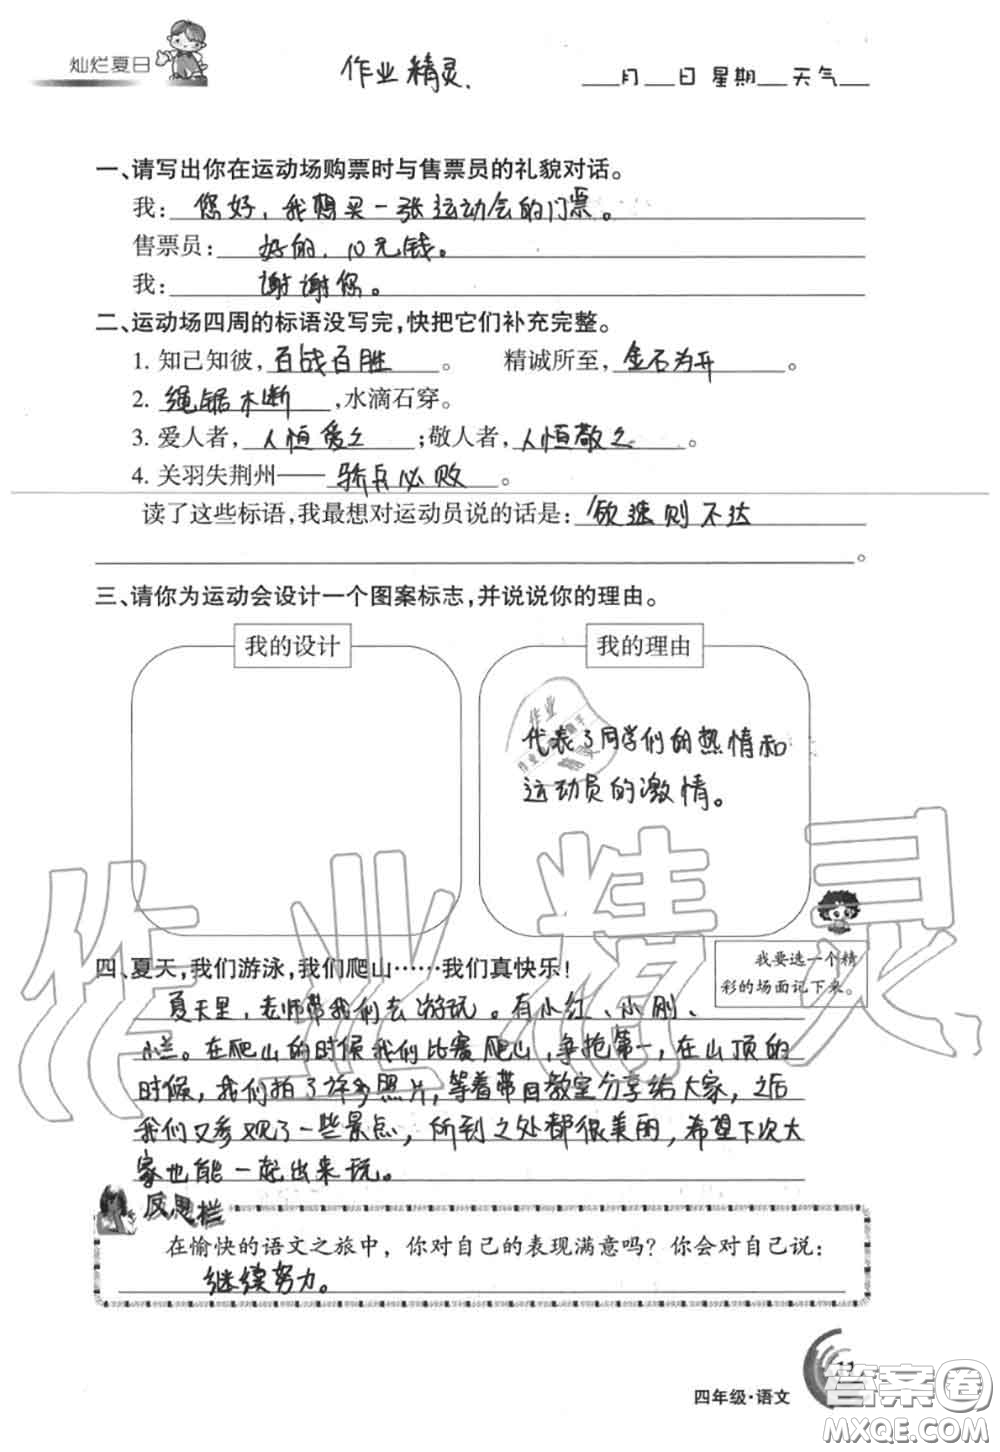 灿烂夏日
作业精灵.
___月___日 星期___天气___
一、请写出你在运动场购票时与售票员的礼貌对话。
我：您好，我想买一张运动会的门票。
售票员：好的，10元钱。
我：谢谢您。
二、运动场四周的标语没写完，快把它们补充完整。
1. 知己知彼，百战百胜。 精诚所至，金石为开。
2. 绳锯木断，水滴石穿。
3. 爱人者，人恒爱之；敬人者，人恒敬之。
4. 关羽失荆州——骄兵必败。
读了这些标语，我最想对运动员说的话是：欲速则不达
。
三、请你为运动会设计一个图案标志，并说说你的理由。
我的设计
我的理由
代表了同学们的热情和
运动员的激情。
作业精灵
四、夏天，我们游泳，我们爬山……我们真快乐！
我要选一个精
彩的场面记下来。
夏天里，老师带我们去游玩。有小红、小刚、
小兰。在爬山的时候我们比赛爬山，争抢第一，在山顶的
时候，我们拍了许多照片，等着带回教室分享给大家，之后
我们又参观了一些景点，所到之处都很美丽，希望下次大
家也能一起出来玩。
反思栏
在愉快的语文之旅中，你对自己的表现满意吗？你会对自己说：
继续努力。
四年级·语文
11
答案圈
MXQE.COM